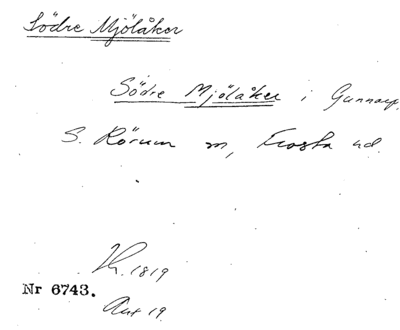 Södre Mjölåker
Södre Mjölåker i Gunnarp.
S. Rörum sn, Frosta hd.
1819
Nr 6743.
Akt 19.